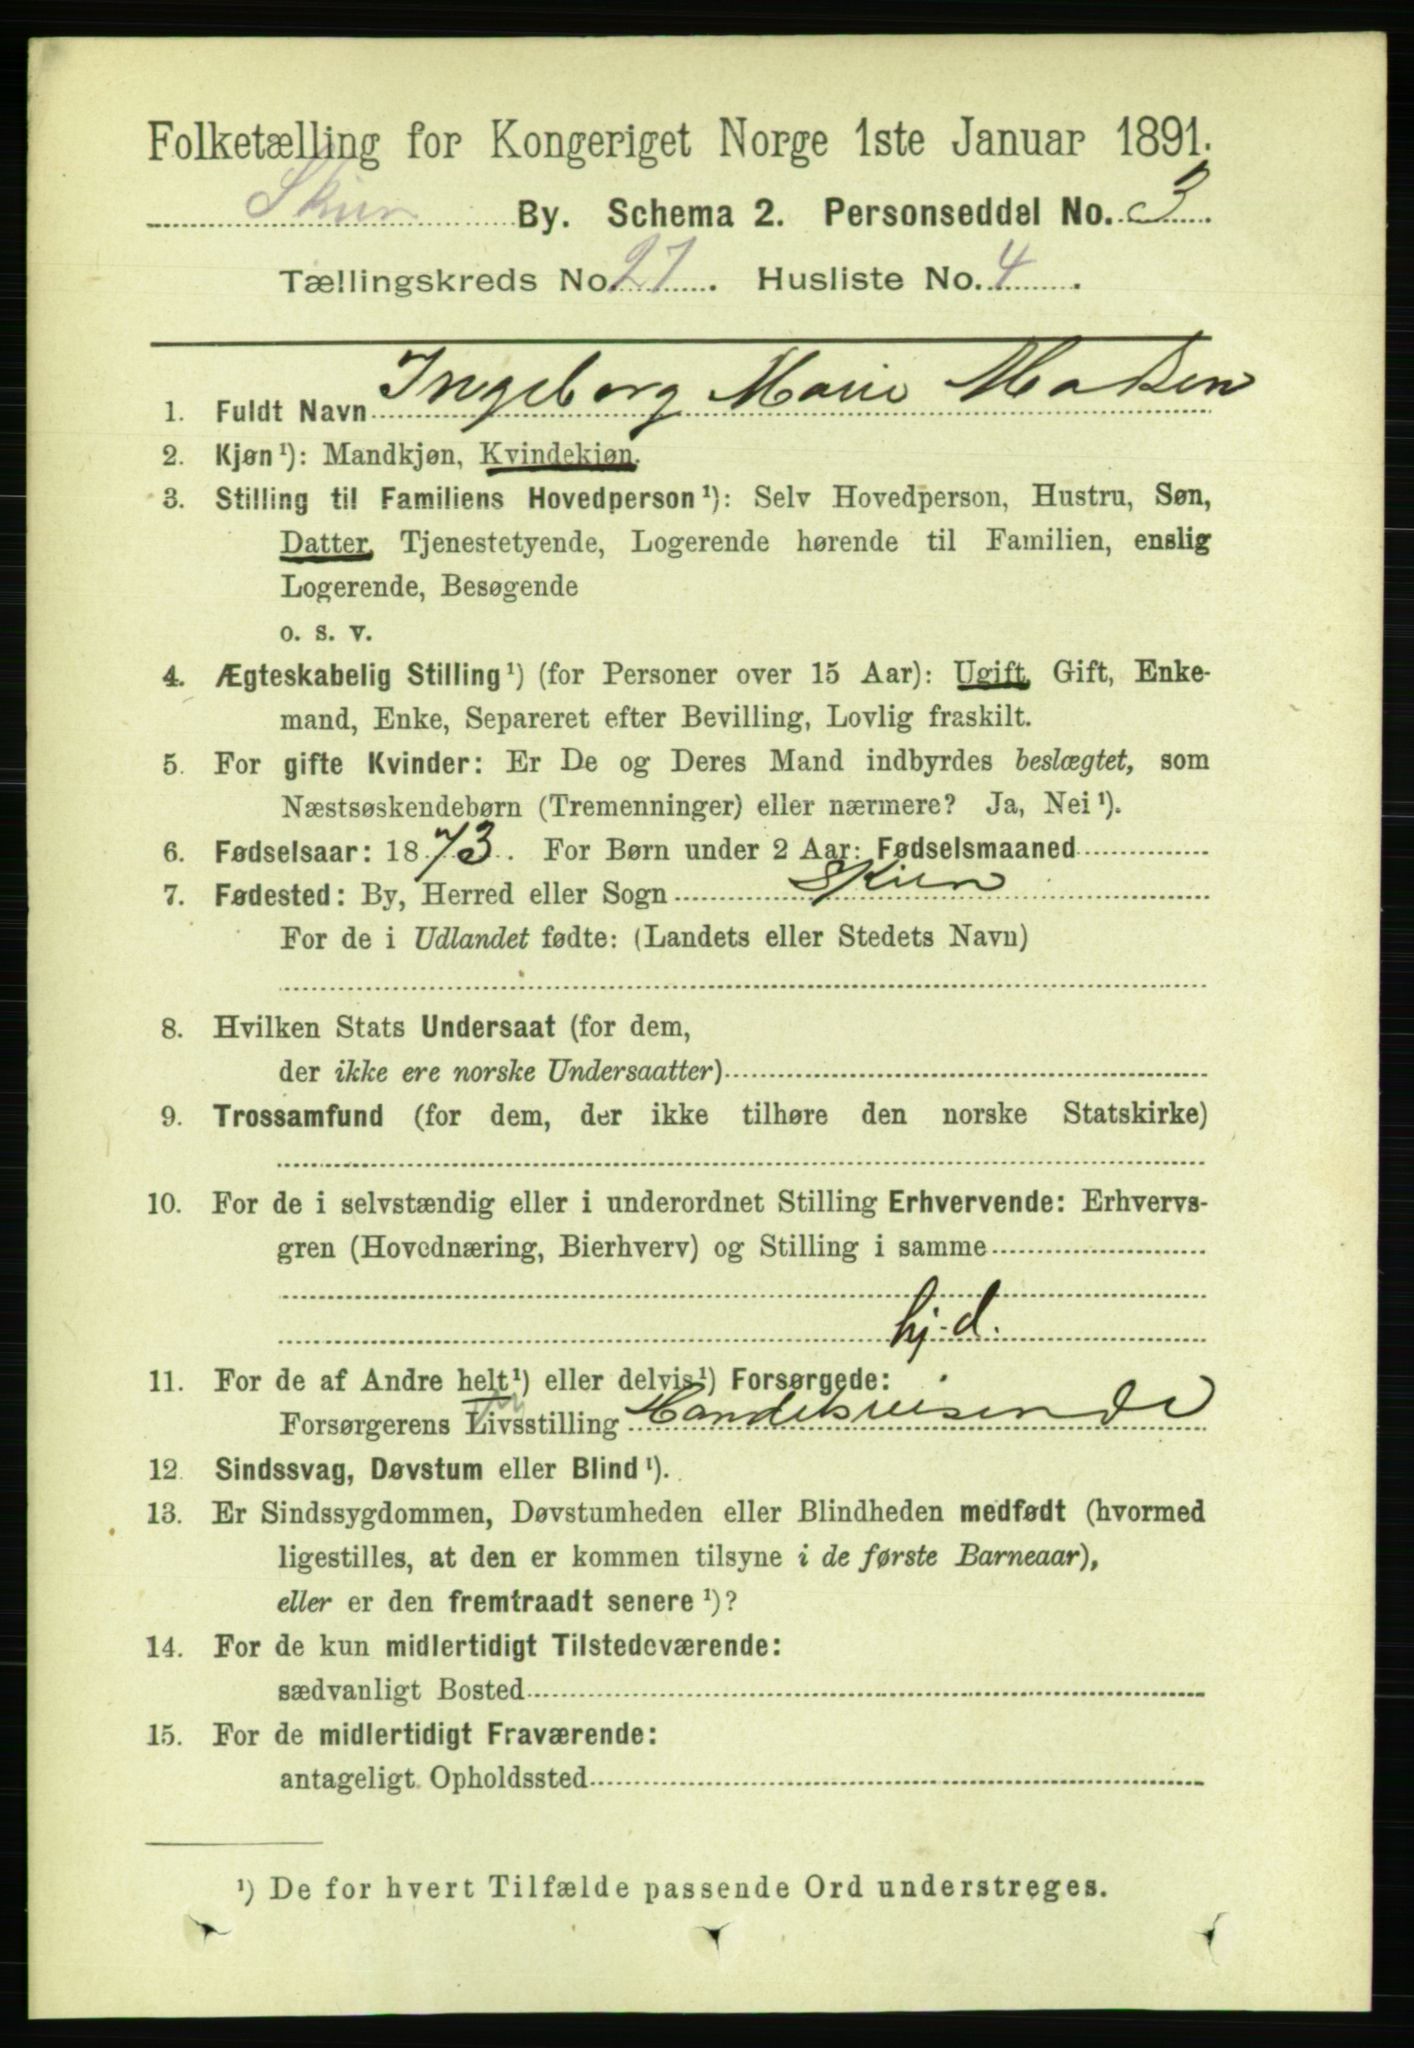 Folketælling for Kongeriget Norge 1ste Januar 1891.
Skien By. Schema 2. Personseddel No. 3
Tællingskreds No. 27. Husliste No. 4.
1. Fuldt Navn Ingeborg Marie Madsen
2. Kjøn¹): Mandkjøn, Kvindekjøn.
3. Stilling til Familiens Hovedperson¹): Selv Hovedperson, Hustru, Søn,
Datter, Tjenestetyende, Logerende hørende til Familien, enslig
Logerende, Besøgende
o. s. v.
4. Ægteskabelig Stilling¹) (for Personer over 15 Aar): Ugift, Gift, Enke-
mand, Enke, Separeret efter Bevilling, Lovlig fraskilt.
5. For gifte Kvinder: Er De og Deres Mand indbyrdes beslægtet, som
Næstsøskendebørn (Tremenninger) eller nærmere? Ja, Nei¹).
6. Fødselsaar: 1873. For Børn under 2 Aar: Fødselsmaaned
7. Fødested: By, Herred eller Sogn Skien
For de i Udlandet fødte: (Landets eller Stedets Navn)
8. Hvilken Stats Undersaat (for dem,
der ikke ere norske Undersaatter)
9. Trossamfund (for dem, der ikke tilhøre den norske Statskirke)
10. For de i selvstændig eller i underordnet Stilling Erhvervende: Erhvervs-
gren (Hovednæring, Bierhverv) og Stilling i samme
hj. d.
11. For de af Andre helt¹) eller delvis¹) Forsørgede:
Forsørgerens Livsstilling Handelsreisende
12. Sindssvag, Døvstum eller Blind¹).
13. Er Sindssygdommen, Døvstumheden eller Blindheden medfødt (hvormed
ligestilles, at den er kommen tilsyne i de første Barneaar),
eller er den fremtraadt senere¹)?
14. For de kun midlertidigt Tilstedeværende:
sædvanligt Bosted
15. For de midlertidigt Fraværende:
antageligt Opholdssted
¹) De for hvert Tilfælde passende Ord understreges.